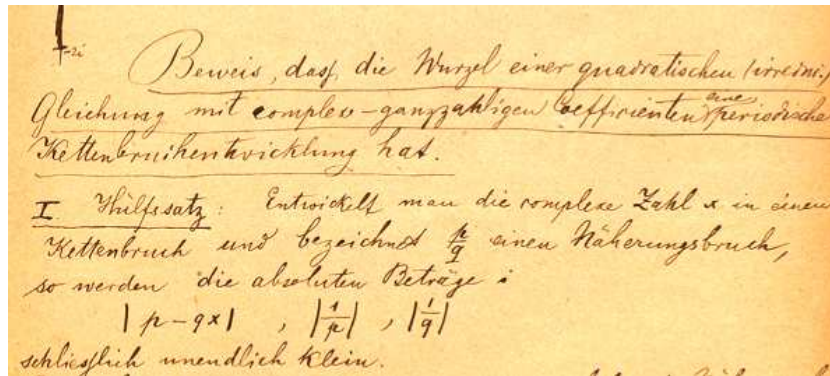 -2i
Beweis, dass die Wurzel einer quadratischen (irreduc.)
Gleichung mit complex-ganzzahligen Coefficienten eine periodische
Kettenbruchentwicklung hat.
I Hülfssatz: Entwickelt man die complexe Zahl x in einen
Kettenbruch und bezeichnet p/q einen Näherungsbruch,
so werden die absoluten Beträge:
|p-qx| , |1/p| , |1/q|
schliesslich unendlich klein.